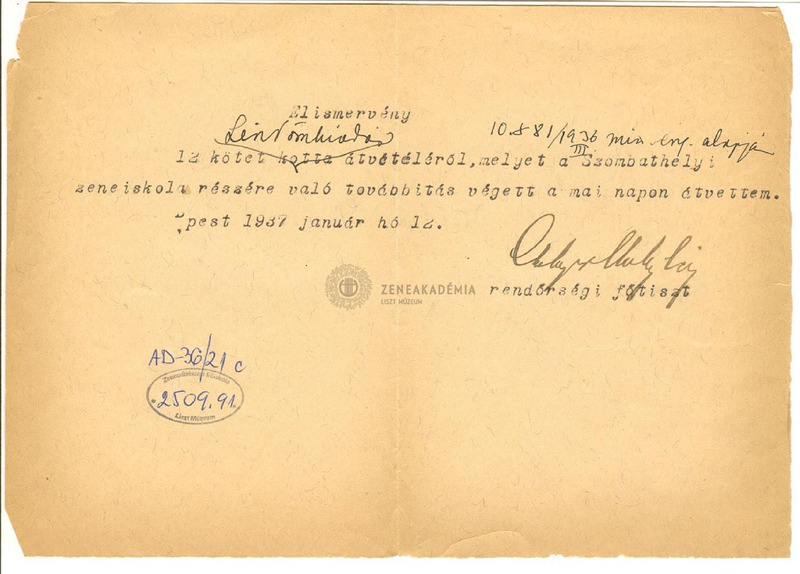 Elismervény
10.881/1936 min. eng. alapján
III.
12 kötet kotta átvételéről, melyet a Szombathelyi
zeneiskola részére való továbbitás végett a mai napon átvettem.
pest 1937 január hó 12.
ZENEAKADÉMIA
LISZT MÚZEUM
rendőrségi főtiszt
AD-36/21 c
Zeneművészeti Főiskola
2509.91.
Liszt Múzeum